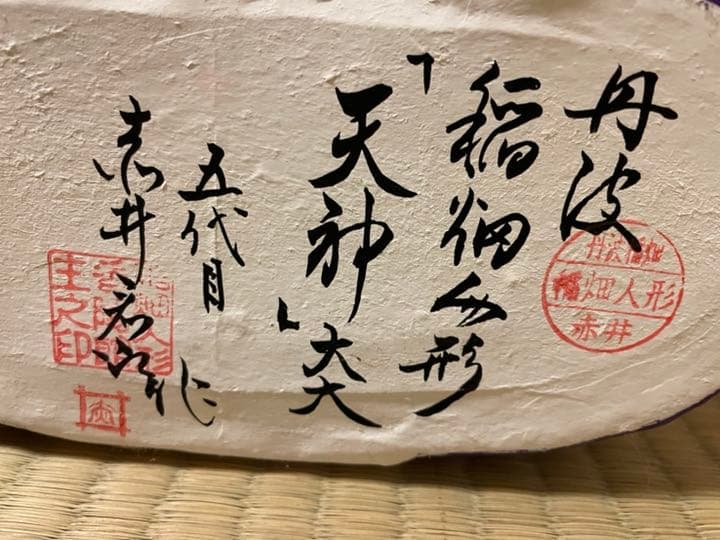 丹波
稲畑人形
「天神」大
五代目
赤井君江作
丹波稲畑
稲畑人形
赤井